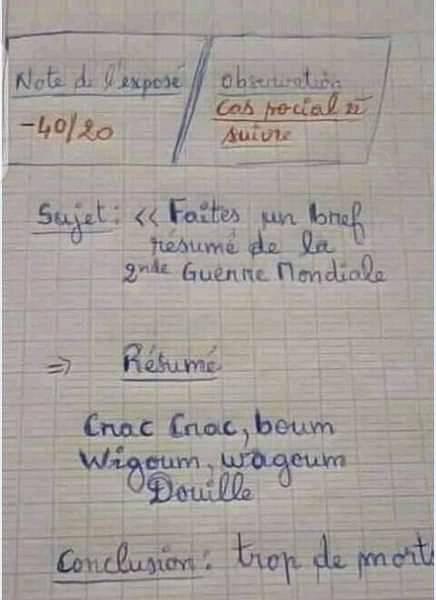 Note de l'exposé
-40/20
Observation
Cas social à
suivre
Sujet : << Faites un bref
résumé de la
2nde Guerre Mondiale
=> Résumé
Crac Crac, boum
Wigoum, wagoum
Douille
Conclusion : trop de morts